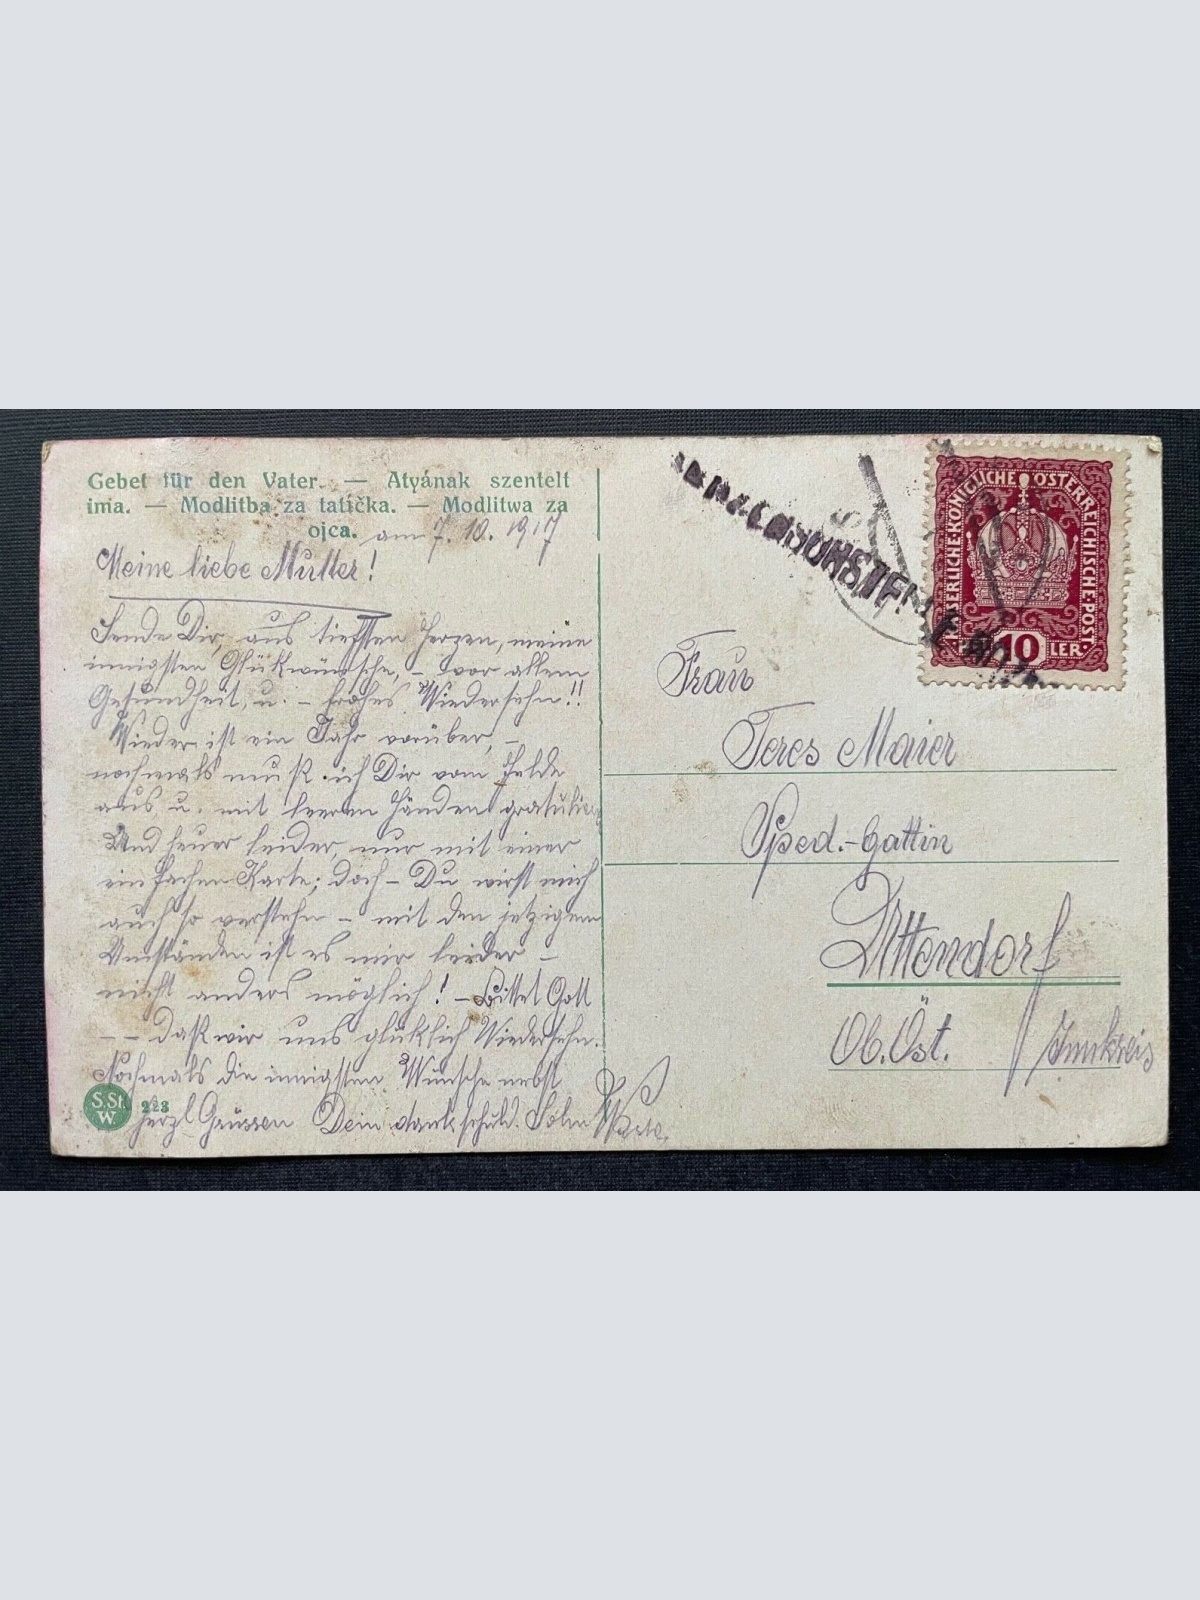 Gebet für den Vater. — Atyának szentelt
ima. — Modlitba za tatíčka. — Modlitwa za
ojca.
am 7. 10. 1917
Meine liebe Mutter!
Sende Dir, aus tiefsten Herzen, meine
innigsten Glückwünsche, – vor allem
Gesundheit, u. – frohes Wiedersehn!!
Wieder ist ein Jahr vorüber, –
nochmals muß ich Dir vom Felde
aus, u. mit leeren Händen gratulie
Und heuer leider, nur mit einer
einfachen Karte; doch – Du wirst mich
auch so verstehn – mit den jetzigen
Umständen ist es mir leider –
nicht anders möglich! – Bittet Gott
– – daß wir uns glücklich Wiedersehn.
Nochmals die innigsten Wünsche nebst
herzl. Grüssen Dein dankschuld. Sohn
S.St.
W.
223
KAISERLICHE KÖNIGLICHE ÖSTERREICHISCHE POST
10
LER.
Frau
Teres Maier
Sped.-Gattin
Uttendorf
Ob. Öst. / Innkreis